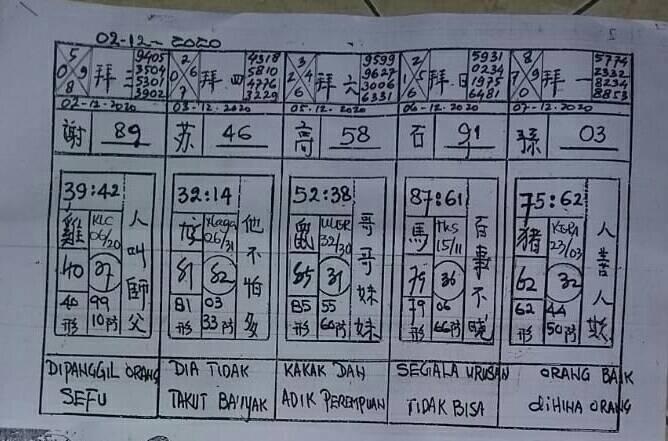 02-12-2020
5 0 9 8 拜三 9405 3504 5301 3902
2 0 6 7 拜四 4318 5810 4776 7229
3 2 4 6 拜六 9599 9627 3006 6331
2 1 5 6 拜日 5931 0234 1975 6481
8 7 9 0 拜一 5774 2332 8234 8853
02-12-2020 03-12-2020 05-12-2020 06-12-2020 07-12-2020
謝 89 苏 46 高 58 石 91 孫 03
39:42 32:14 52:38 87:61 75:62
雞 KLC 06/20 人叫師父
06/31 他不怕多
鼠 ULAR 32/30 哥哥妹妹
馬 15/11 百事不曉
猪 KERA 23/03 人善人欺
40 37 81 82 85 31 79 36 62 32
40 99 81 03 85 55 79 06 62 44
形 10 形 33 形 60 形 66 形 50
DIPANGGIL ORANG SEFU
DIA TIDAK TAKUT BANYAK
KAKAK DAN ADIK PEREMPUAN
SEGALA URUSAN TIDAK BISA
ORANG BAIK diHINA ORANG